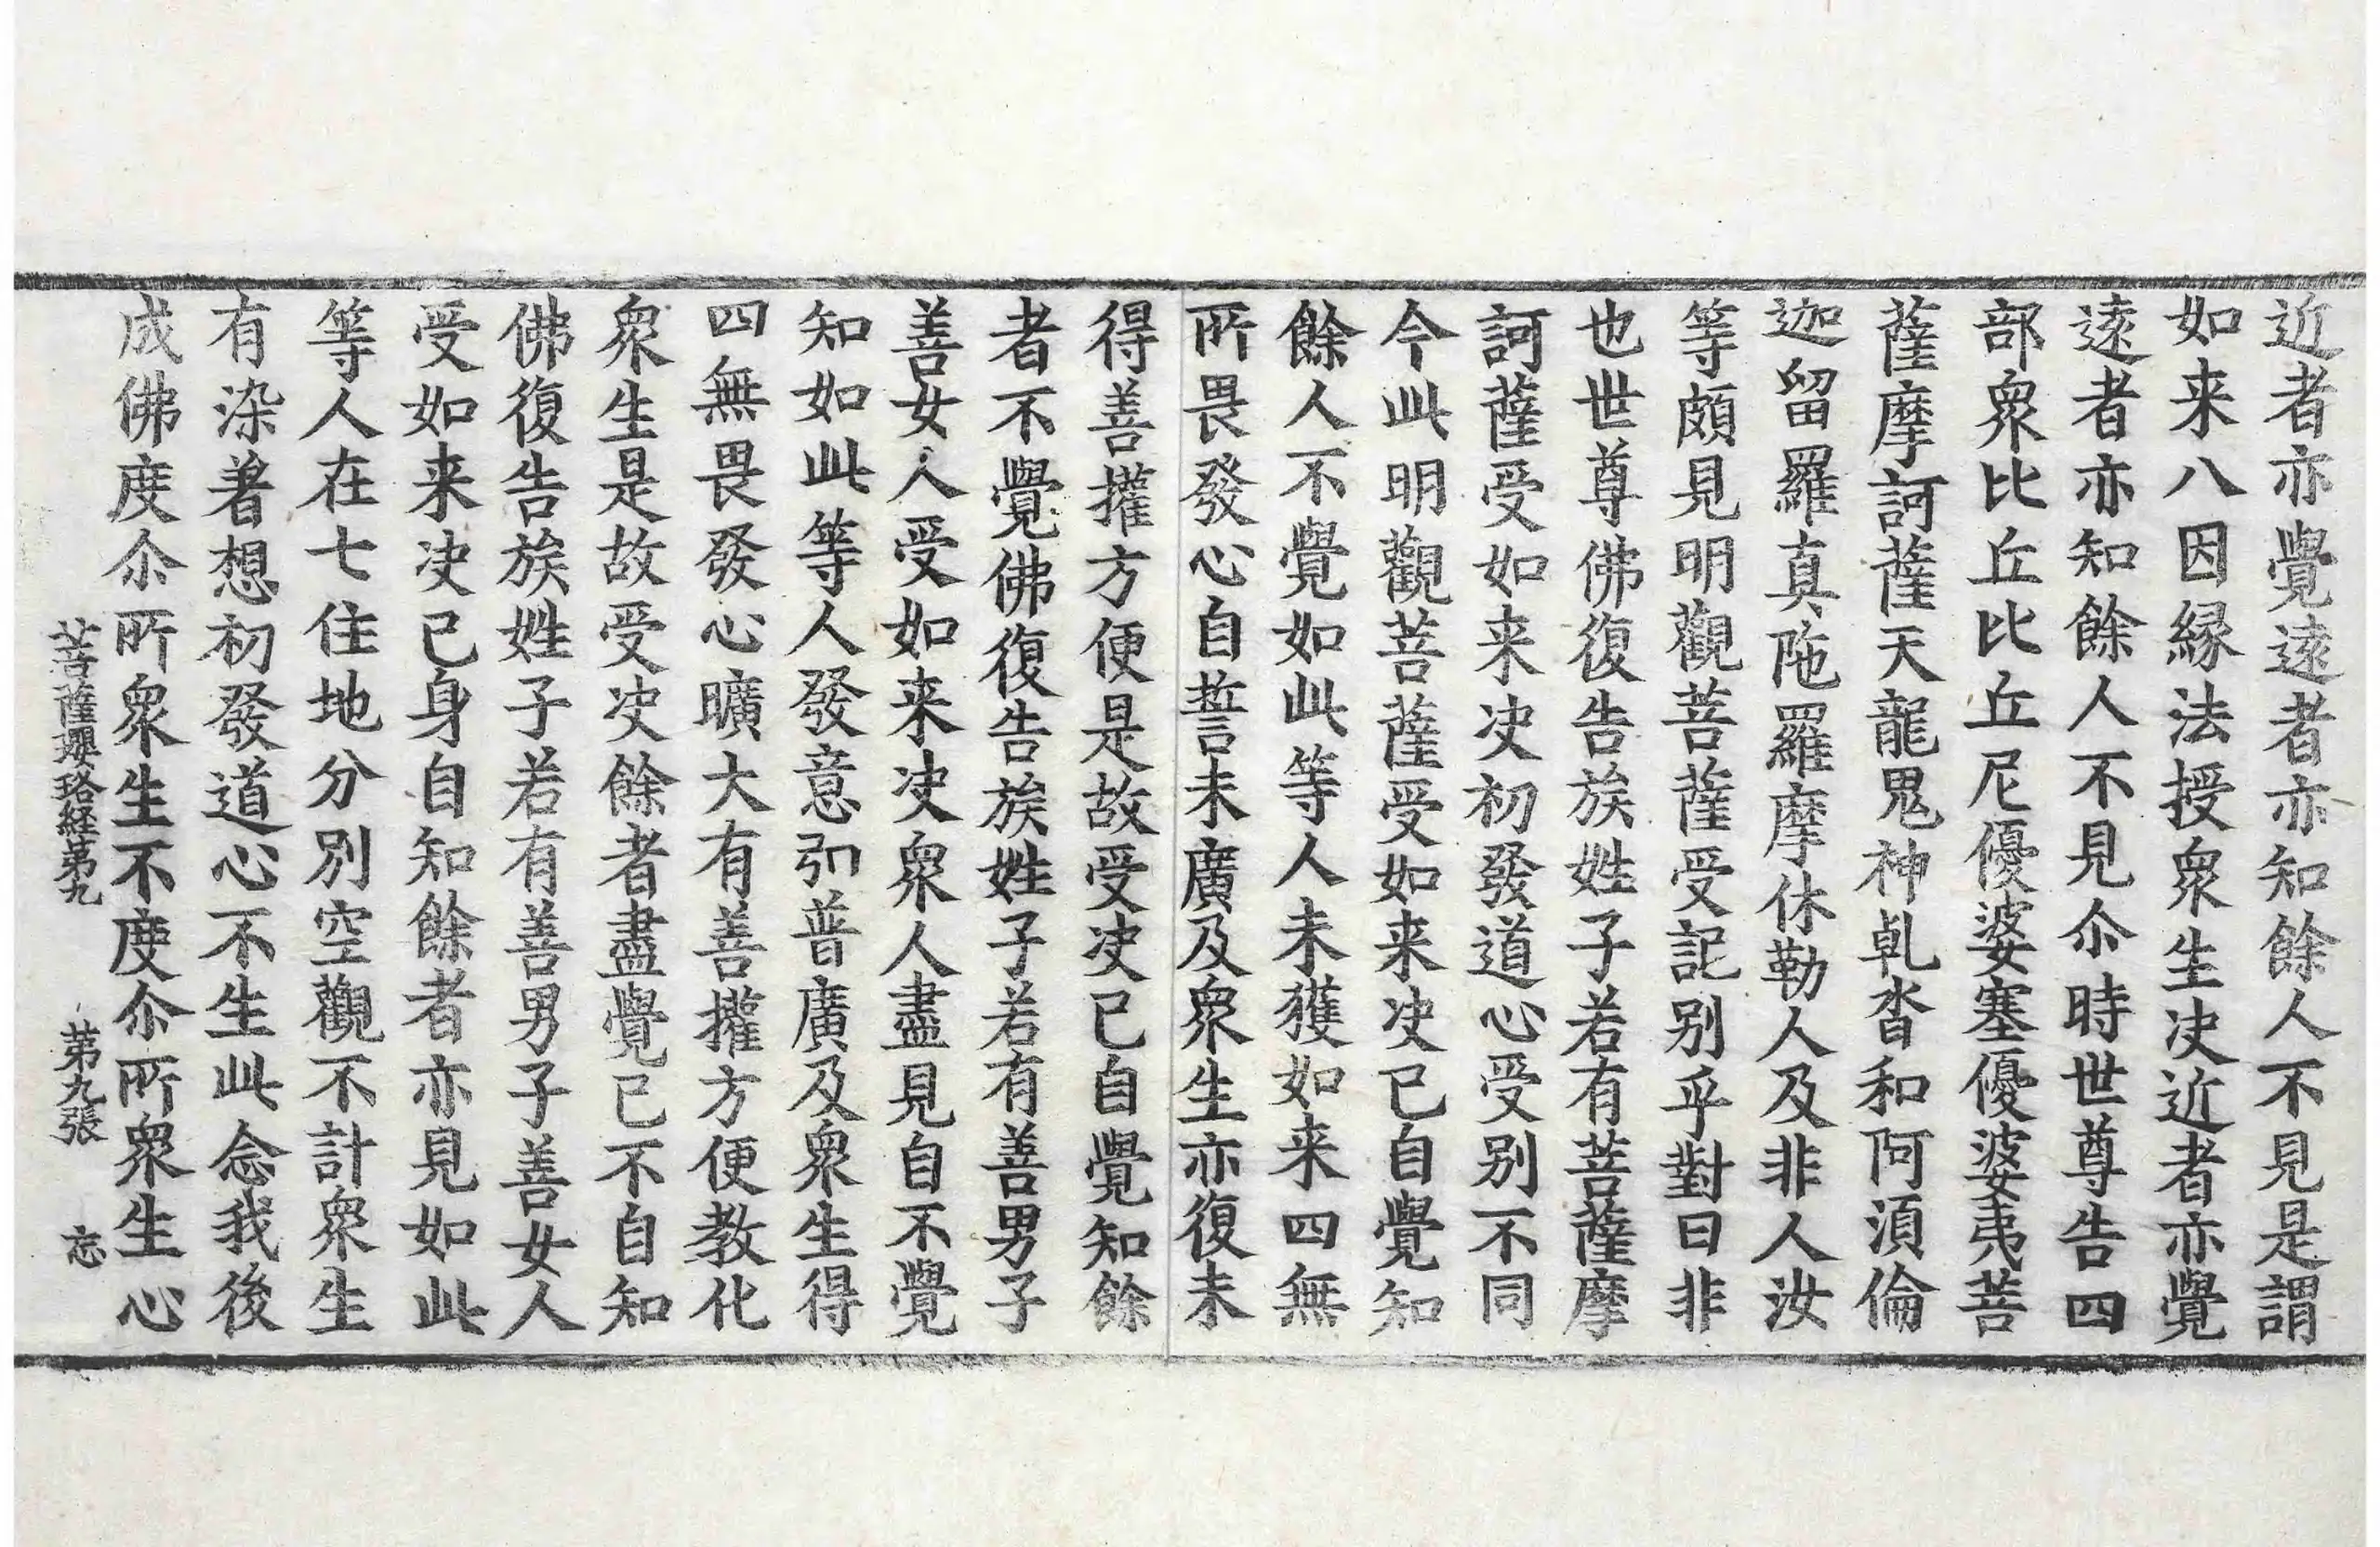 近者亦覺遠者亦知餘人不見是謂
如来八因縁法授衆生决近者亦覺
遠者亦知餘人不見尒時世尊告四
部衆比丘比丘尼優婆塞優婆夷菩
薩摩訶薩天龍鬼神乹沓和阿湏倫
迦留羅真陁羅摩休勒人及非人汝
等頗見明觀菩薩受記别乎對曰非
也世尊佛復告族姓子若有菩薩摩
訶薩受如来决初發道心受别不同
今此明觀菩薩受如来决已自覺知
餘人不覺如此等人未獲如来四無
所畏發心自誓未廣及衆生亦復未
得善權方便是故受决已自覺知餘
者不覺佛復告族姓子若有善男子
善女人受如来决衆人盡見自不覺
知如此等人發意弘普廣及衆生得
四無畏發心曠大有善權方便教化
衆生是故受决餘者盡覺已不自知
佛復告族姓子若有善男子善女人
受如来决已身自知餘者亦見如此
等人在七住地分別空觀不計衆生
有染著想初發道心不生此念我後
成佛度尒所衆生不度尒所衆生心
菩薩瓔珞経第九 第九張 忘